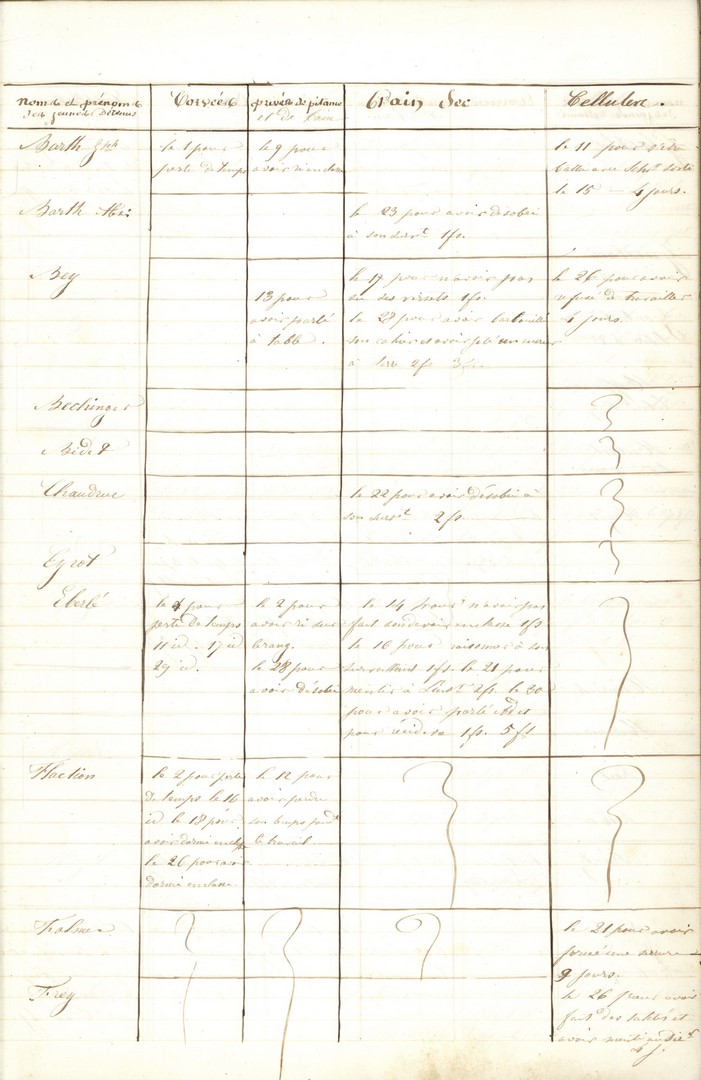 Noms et prénoms
des jeunes Détenus
Corvées
privés de pitance
et de
Pain Sec
Cellulese.
Barth Jph
le 1 pour
perte de temps
le 9 pour
avoir
le 11 pour s'être
battu avec sorti
le 15 — 4 jours.
Barth
le 23 pour avoir désobéi
à son survt 1 fs.
Bey
13 pour
avoir parlé
à table.
le 17 pour n'avoir pas
su ses 1 fs.
le 28 pour avoir barbouillé
son cahier et avoir jeté un
à 2 fs 3
le 26 pour avoir
refusé de travailler
4 jours.
Bechinger
Bidet
Chaudruc
le 22 pour avoir désobéi à
son survt 2 fs.
Eyrot
Eberlé
le 4 pour
perte de temps
11 id. 17 id
29 id.
le 2 pour
avoir ri sur
le rang.
le 28 pour
avoir désobéi
le 14 pour n'avoir pas
fait son devoir en classe 1 fs.
le 16 pour raisonner à son
surveillant 1 fs. le 21 pour
mentir à 2 fs. le 30
pour avoir parlé et
pour 1 fs. 5 fs
Flaction
le 2 pour perte
de temps le 16
id le 18 pour
avoir dormi en classe
le 26 pour avoir
dormi en classe
le 12 pour
avoir perdu
son temps pendt
le travail
Folmer
le 21 pour avoir
forcé une serrure
9 jours.
Frey
le 26 pour avoir
fait des et
avoir menti au Dirr
4 j.